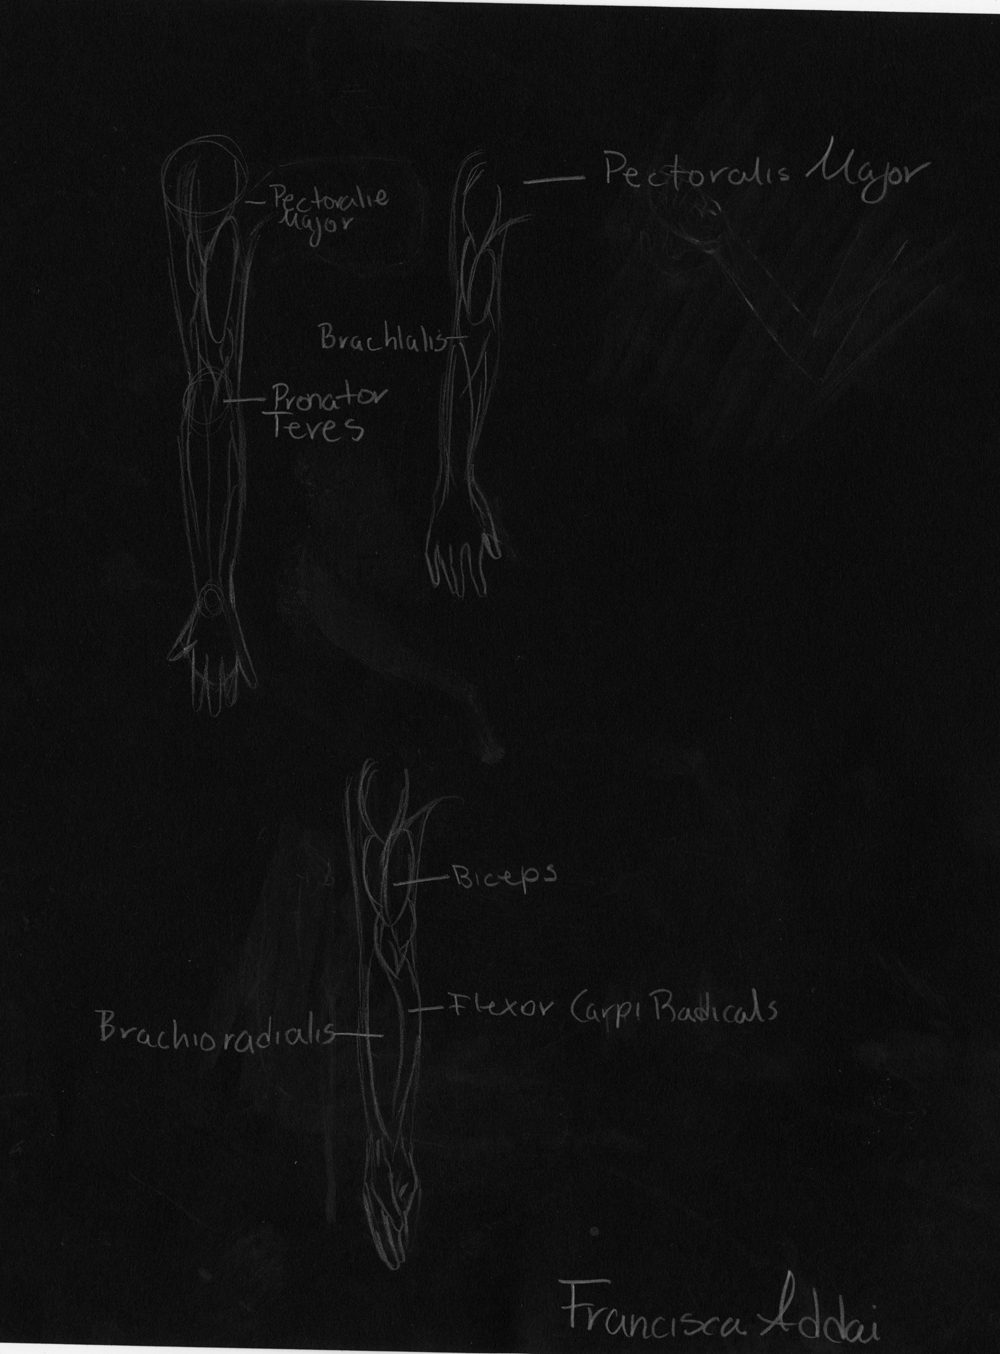 Pectoralis Major
Pectoralie
Major
Brachlalis
Pronator
Teres
Biceps
Flexor Carpi Radicals
Brachioradialis
Francisca Addai